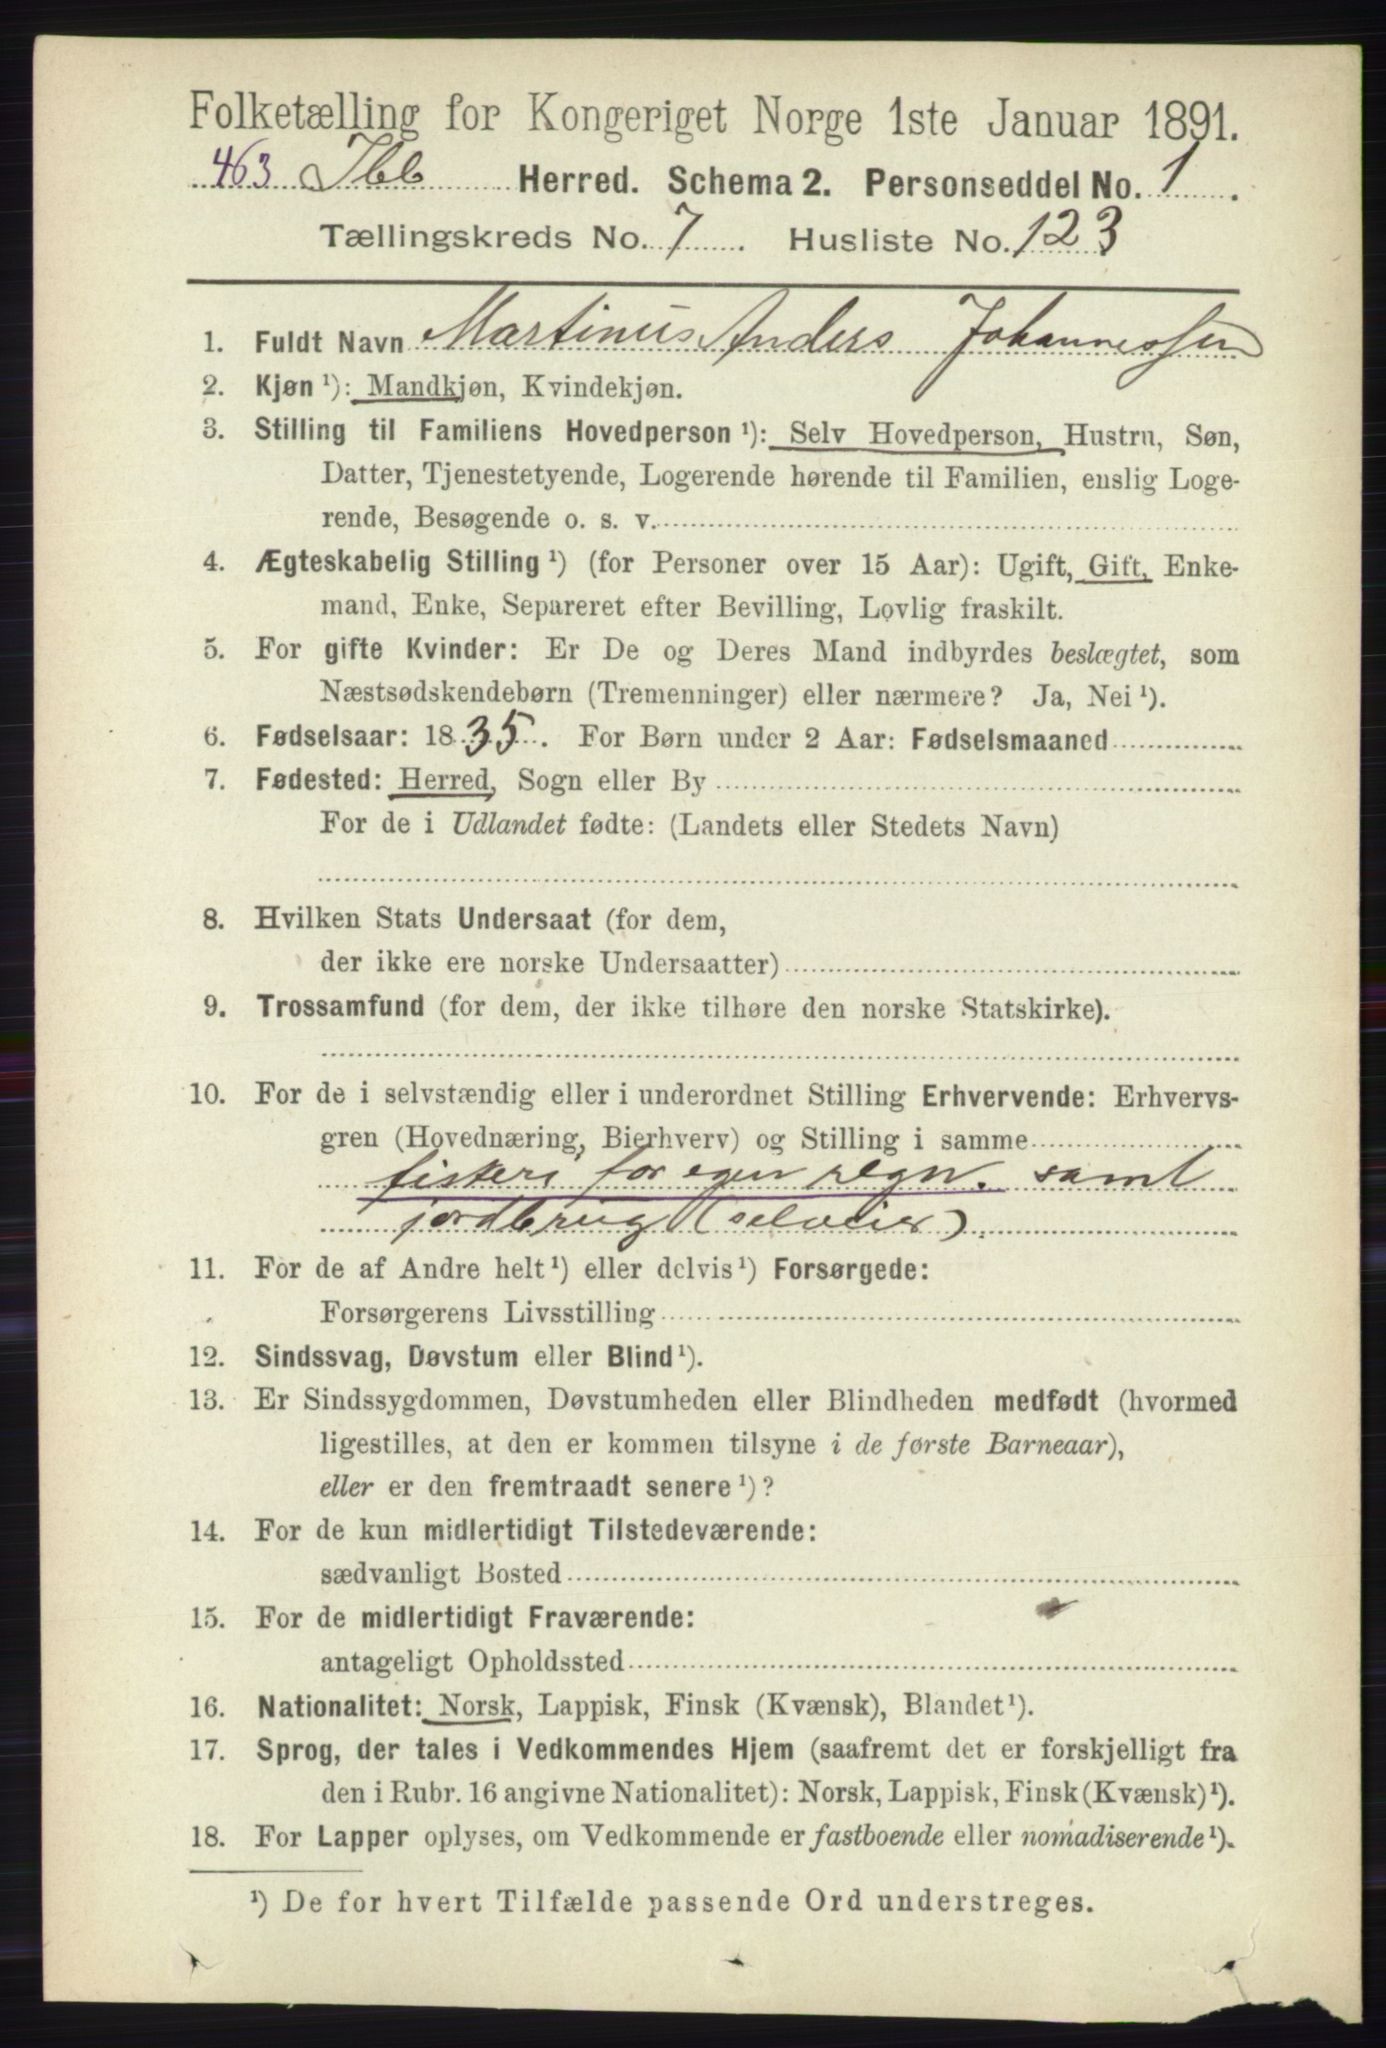 Folketælling for Kongeriget Norge 1ste Januar 1891.
463 Ibb Herred. Schema 2. Personseddel No. 1.
Tællingskreds No. 7. Husliste No. 123
1. Fuldt Navn Martinus Anders Johannessen
2. Kjøn ¹): Mandkjøn, Kvindekjøn.
3. Stilling til Familiens Hovedperson ¹): Selv Hovedperson, Hustru, Søn,
Datter, Tjenestetyende, Logerende hørende til Familien, enslig Loge-
rende, Besøgende o. s. v.
4. Ægteskabelig Stilling ¹) (for Personer over 15 Aar): Ugift, Gift, Enke-
mand, Enke, Separeret efter Bevilling, Lovlig fraskilt.
5. For gifte Kvinder: Er De og Deres Mand indbyrdes beslægtet, som
Næstsødskendebørn (Tremenninger) eller nærmere? Ja, Nei ¹).
6. Fødselsaar: 1835. For Børn under 2 Aar: Fødselsmaaned
7. Fødested: Herred, Sogn eller By
For de i Udlandet fødte: (Landets eller Stedets Navn)
8. Hvilken Stats Undersaat (for dem,
der ikke ere norske Undersaatter)
9. Trossamfund (for dem, der ikke tilhøre den norske Statskirke).
10. For de i selvstændig eller i underordnet Stilling Erhvervende: Erhvervs-
gren (Hovednæring, Bierhverv) og Stilling i samme
fiskeri for egen regn. samt
jordbrug (selveier).
11. For de af Andre helt ¹) eller delvis ¹) Forsørgede:
Forsørgerens Livsstilling
12. Sindssvag, Døvstum eller Blind ¹).
13. Er Sindssygdommen, Døvstumheden eller Blindheden medfødt (hvormed
ligestilles, at den er kommen tilsyne i de første Barneaar),
eller er den fremtraadt senere ¹)?
14. For de kun midlertidigt Tilstedeværende:
sædvanligt Bosted
15. For de midlertidigt Fraværende:
antageligt Opholdssted
16. Nationalitet: Norsk, Lappisk, Finsk (Kvænsk), Blandet ¹).
17. Sprog, der tales i Vedkommendes Hjem (saafremt det er forskjelligt fra
den i Rubr. 16 angivne Nationalitet): Norsk, Lappisk, Finsk (Kvænsk) ¹).
18. For Lapper oplyses, om Vedkommende er fastboende eller nomadiserende ¹).
¹) De for hvert Tilfælde passende Ord understreges.